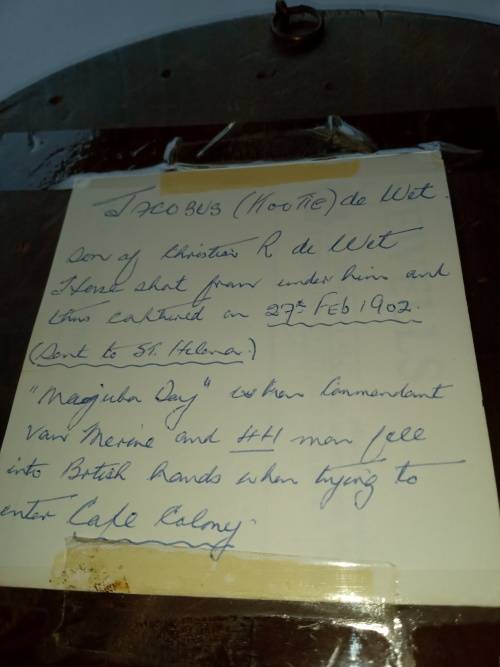 JACOBUS (KOOTIE) de Wet.
Son of Christian R de Wet
Horse shot from under him and
thus captured on 27th FEB 1902.
(Sent to St. Helena.)
"Magjuba Day" when Commandant
van Merwe and 441 men fell
into British hands when trying to
enter Cape Colony.